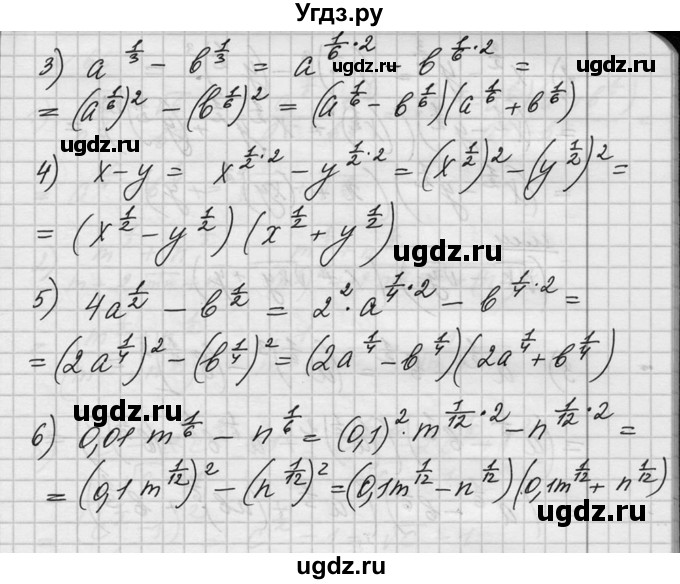 Угдз.ру
3) a^{1/3} - b^{1/3} = a^{1/6·2} - b^{1/6·2} =
ugdz.ru
ugdz.ru
= (a^{1/6})^2 - (b^{1/6})^2 = (a^{1/6} - b^{1/6})(a^{1/6} + b^{1/6})
ugdz.ru
4) x - y = x^{1/2·2} - y^{1/2·2} = (x^{1/2})^2 - (y^{1/2})^2 =
= (x^{1/2} - y^{1/2})(x^{1/2} + y^{1/2})
ugdz.ru
5) 4a^{1/2} - b^{1/2} = 2^2·a^{1/4·2} - b^{1/4·2} =
= (2a^{1/4})^2 - (b^{1/4})^2 = (2a^{1/4} - b^{1/4})(2a^{1/4} + b^{1/4})
ugdz.ru
6) 0,01 m^{1/6} - n^{1/6} = (0,1)^2·m^{1/12·2} - n^{1/12·2} =
= (0,1 m^{1/12})^2 - (n^{1/12})^2 = (0,1m^{1/12} - n^{1/12})(0,1m^{1/12} + n^{1/12})
ugdz.ru
ugdz.ru